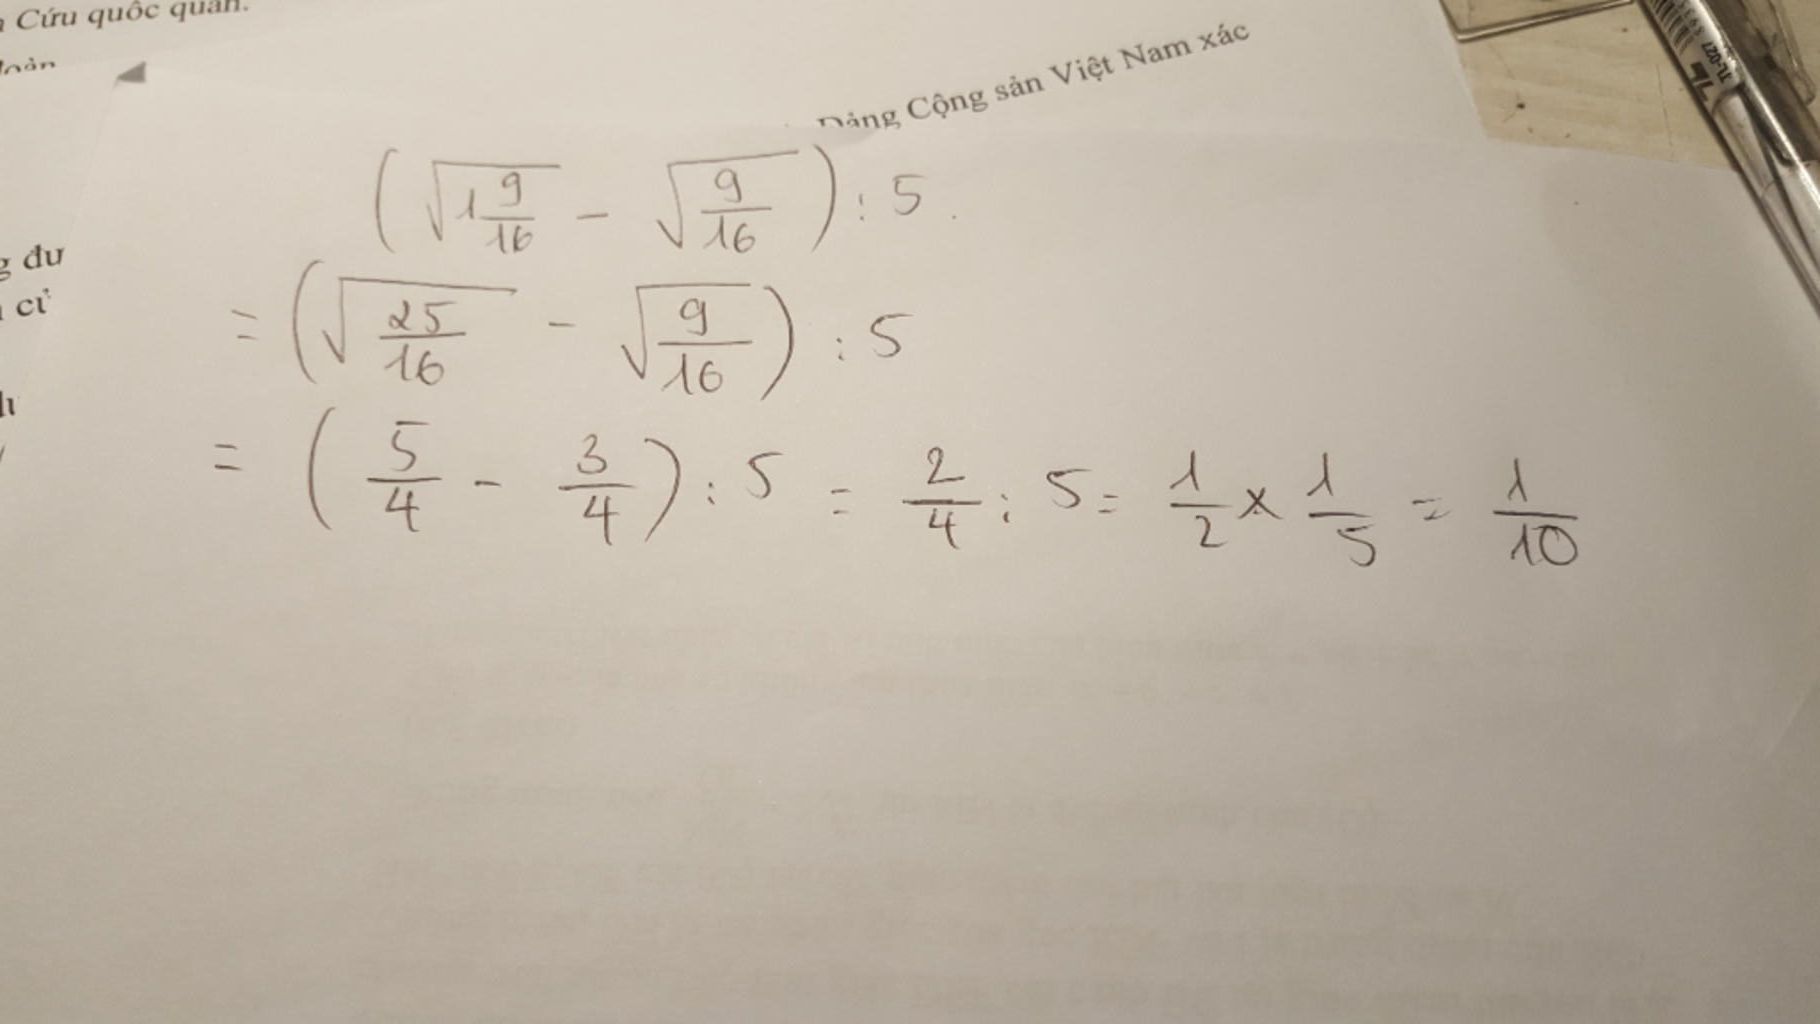 Cứu quốc quân.
Đảng Cộng sản Việt Nam xác
(√1 9/16 - √9/16) : 5.
g đư
= (√25/16 - √9/16) : 5
= (5/4 - 3/4) : 5 = 2/4 : 5 = 1/2 x 1/5 = 1/10
TL-027